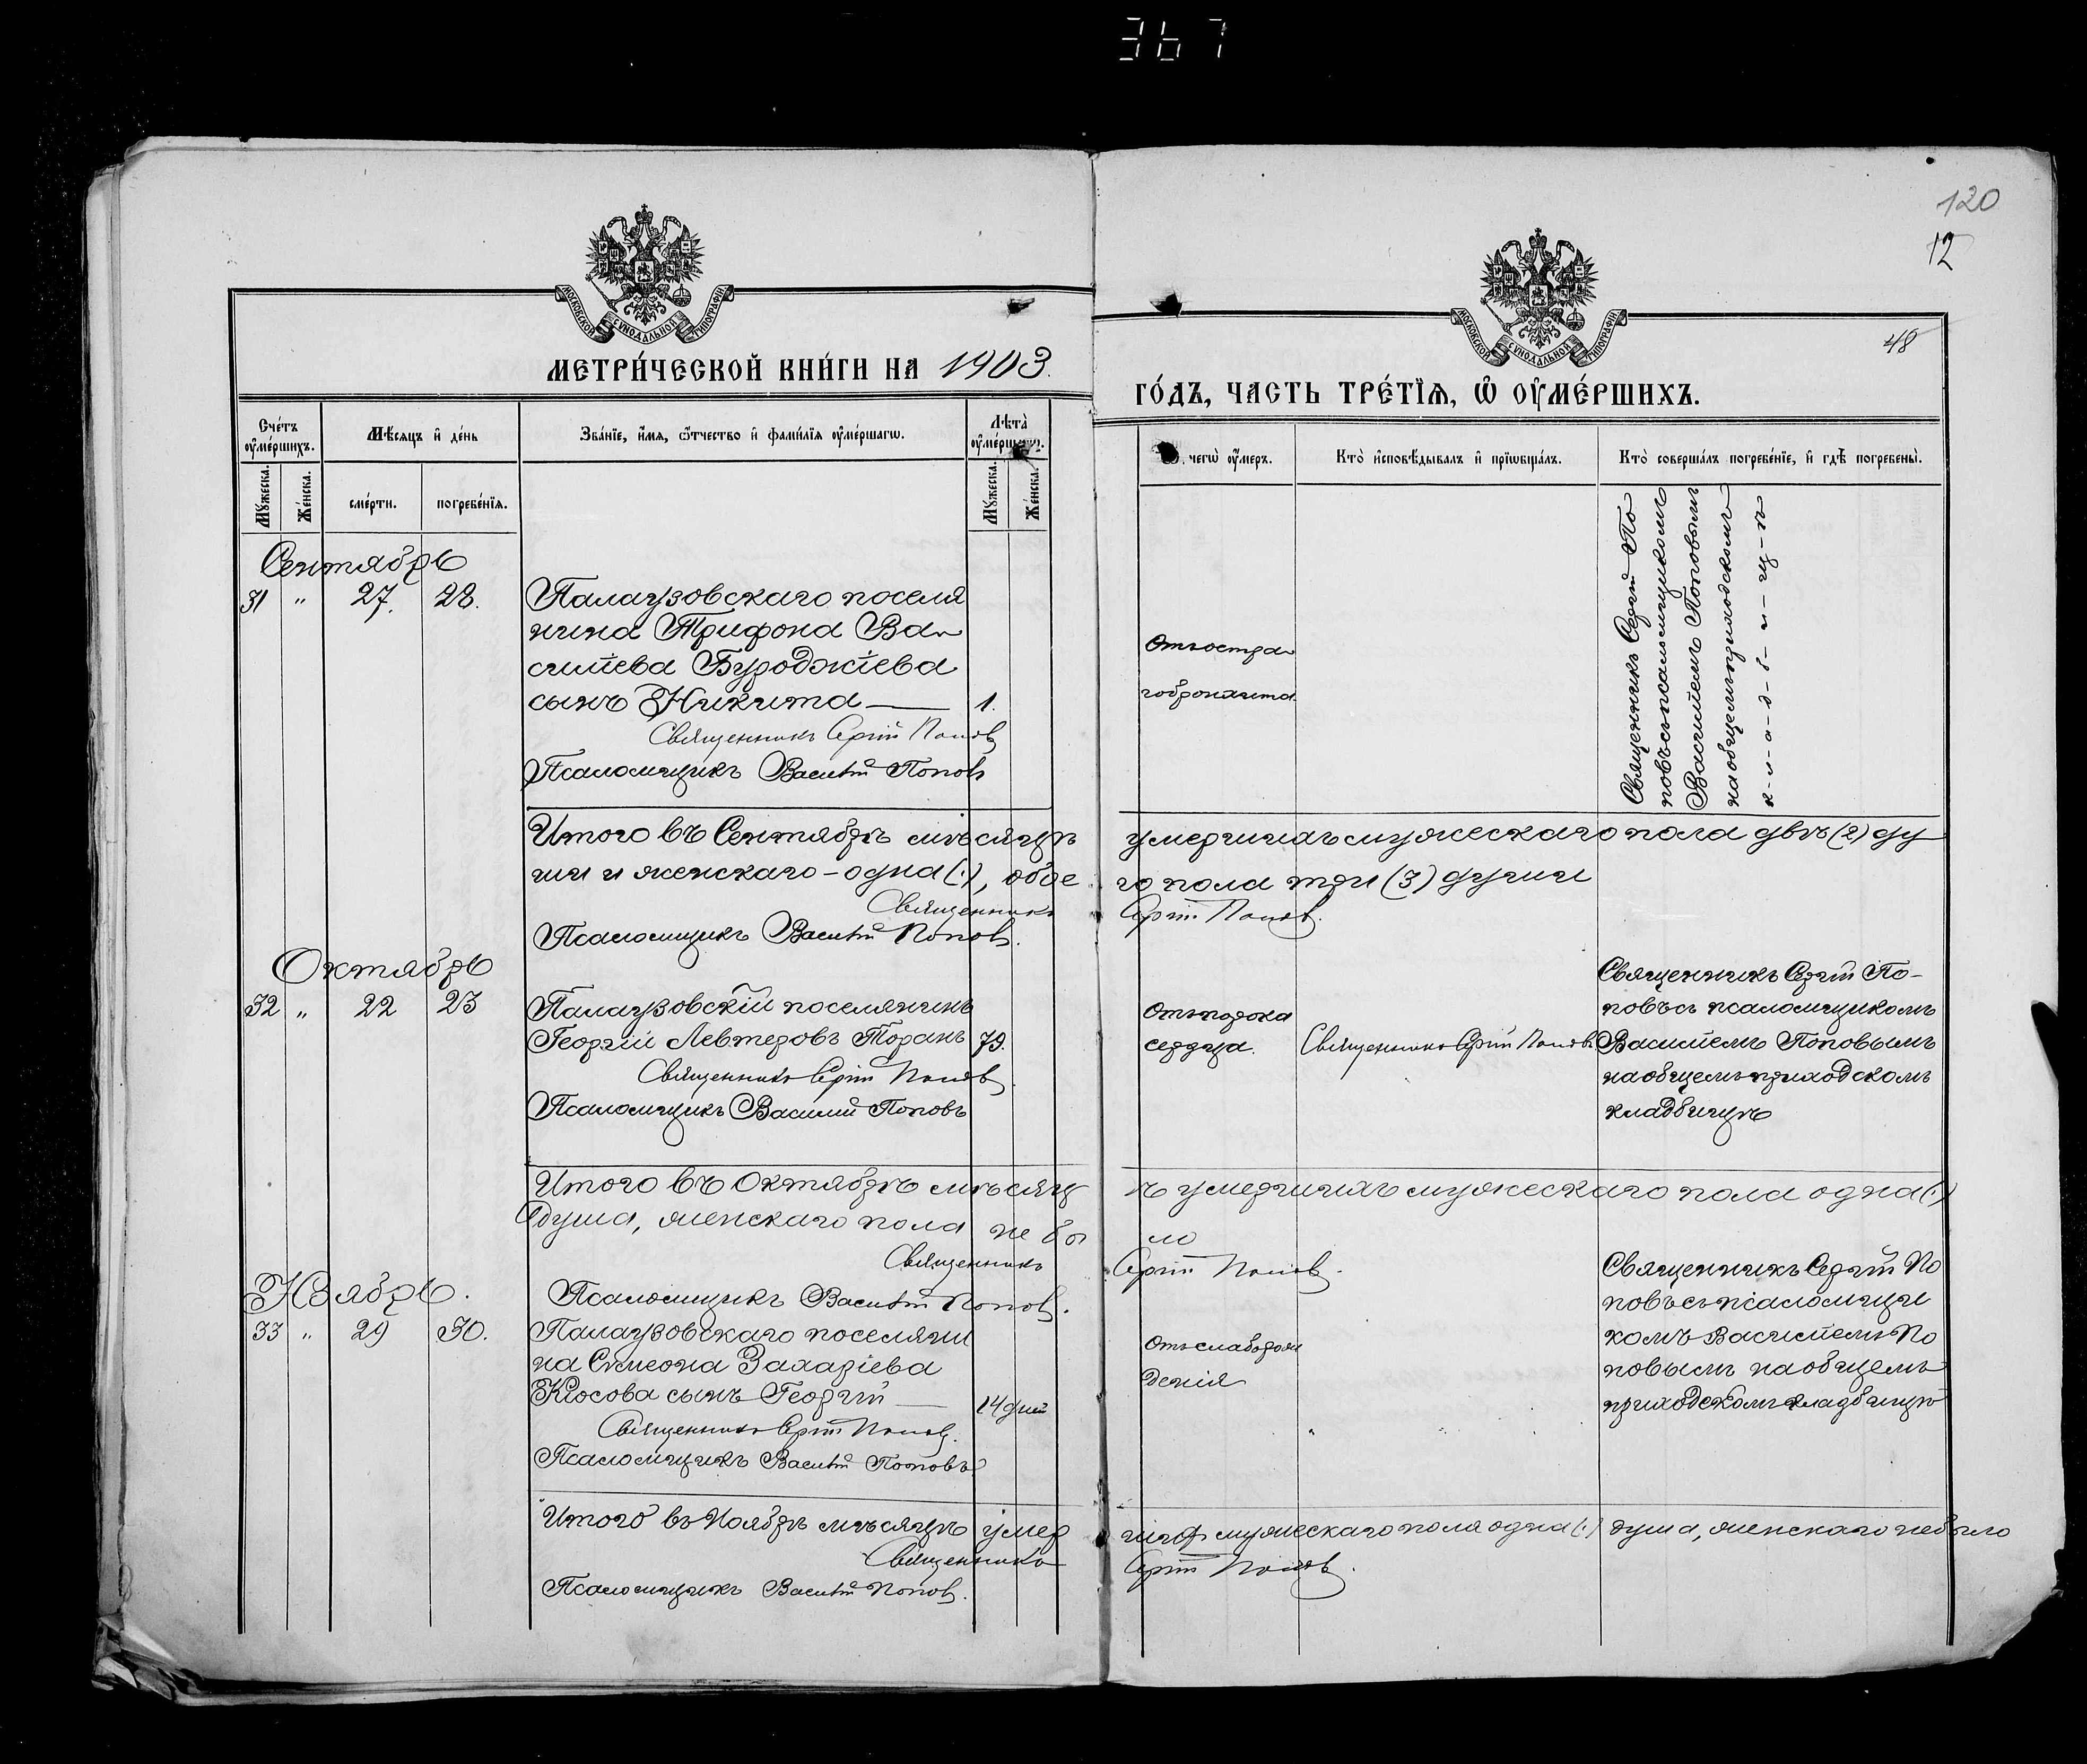 367
120
12
48
МОСКОВСКОЙ СУНОДАЛЬНОЙ ТИПОГРАФІИ
МЕТРИ́ЧЕСКОЙ КНИ́ГИ НА 1903.
МОСКОВСКОЙ СУНОДАЛЬНОЙ ТИПОГРАФІИ
ГО́ДЪ, ЧАСТЬ ТРЕ́ТІѦ, Ѽ ОУ҆МЕ́РШИХЪ.
Сче́тъ оу҆ме́ршихъ.
Мѣ́сяцъ и҆ де́нь
Зва́нїе, и҆́мѧ, ѻ҆́тчество и҆ фами́лїѧ оу҆ме́ршагѡ.
Лѣ́та̀ оу҆ме́ршагѡ.
Мꙋ́жеска.
Же́нска.
сме́рти.
погребе́нїѧ.
Мꙋ́жеска.
Же́нска.
чегѡ̀ оу҆́меръ.
Кто̀ и҆сповѣ́дывалъ и҆ прїѡбща́лъ.
Кто̀ соверша́лъ погребе́нїе, и҆ гдѣ̀ погребены̀.
Сентябрь
31 " 27. 28.
Палаузовскаго поселя
нина Трифона Ва-
силіева Буроджіева
сынъ Никита — 1.
Священникъ Сергій Попов
Псаломщикъ Василій Поповъ
Отъ остра-
го бронхита
Священникъ Сергій По
повъ съ псаломщикомъ
Василіемъ Поповымъ
на общемъ приходскомъ
к-л-а-д-б-и-щ-ѣ
Итого въ Сентябрѣ мѣсяцѣ умершихъ мужескаго пола двѣ (2) ду
ши и женскаго - одна (1), обое го пола три (3) души
Священникъ Сергій Попов.
Псаломщикъ Василій Попов.
Октябрь
32 " 22 23
Палаузовскій поселянинъ
Георгій Левтеровъ Торанъ 79.
Священникъ Сергій Попов
Псаломщикъ Василий Поповъ
Отъ порока
сердца.
Священникъ Сергій Попов.
Священникъ Сергій По-
повъ съ псаломщикомъ
Василіемъ Поповымъ
на общемъ приходскомъ
кладбищѣ
Итого въ Октябрѣ мѣсяц ѣ умершихъ мужескаго пола одна (1)
душа, женскаго пола не бы ло
Священникъ Сергій Попов.
Псаломщикъ Василій Попов.
Ноябрь.
33 " 29 30.
Палаузовскаго поселяни
на Симеона Захаріева
Кюсова сынъ Георгій — 14 дней
Священникъ Сергій Попов.
Псаломщикъ Василій Поповъ
Отъ слаборож
денія
Священникъ Сергій По
повъ съ псаломщи
комъ Василіемъ По
повымъ на общемъ
приходскомъ кладбищѣ
Итого въ Ноябрѣ мѣсяцѣ умер мужескаго пола одна (1) душа, женскаго не было
Священникъ Сергій Попов.
Псаломщикъ Василій Попов.